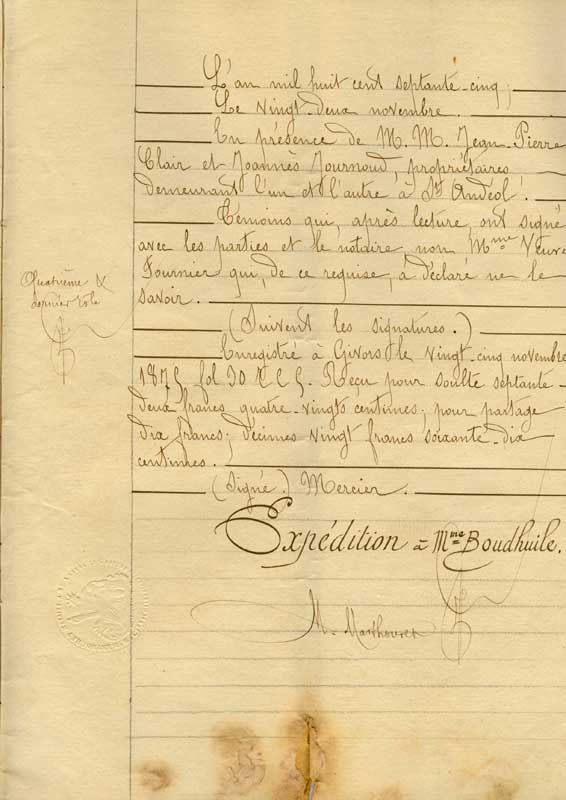 L'an mil huit cent septante-cinq,
Le vingt-deux novembre.
En présence de M. M. Jean-Pierre
Clair et Joannès Journoud, propriétaires
demeurant l'un et l'autre à St Andéol.
Témoins qui, après lecture, ont signé
avec les parties et le notaire, non Mme Veuve
Fournier qui, de ce requise, a déclaré ne le
savoir.
Quatrième &
dernier rôle
(Suivent les signatures.)
Enregistré à Givors le vingt-cinq novembre
1875, fol 30 Reçu pour soulte septante-
deux francs quatre-vingts centimes; pour partage
dix francs; décimes vingt francs soixante-dix
centimes.
(Signé) Mercier.
Expédition à Mme Boudhuile.